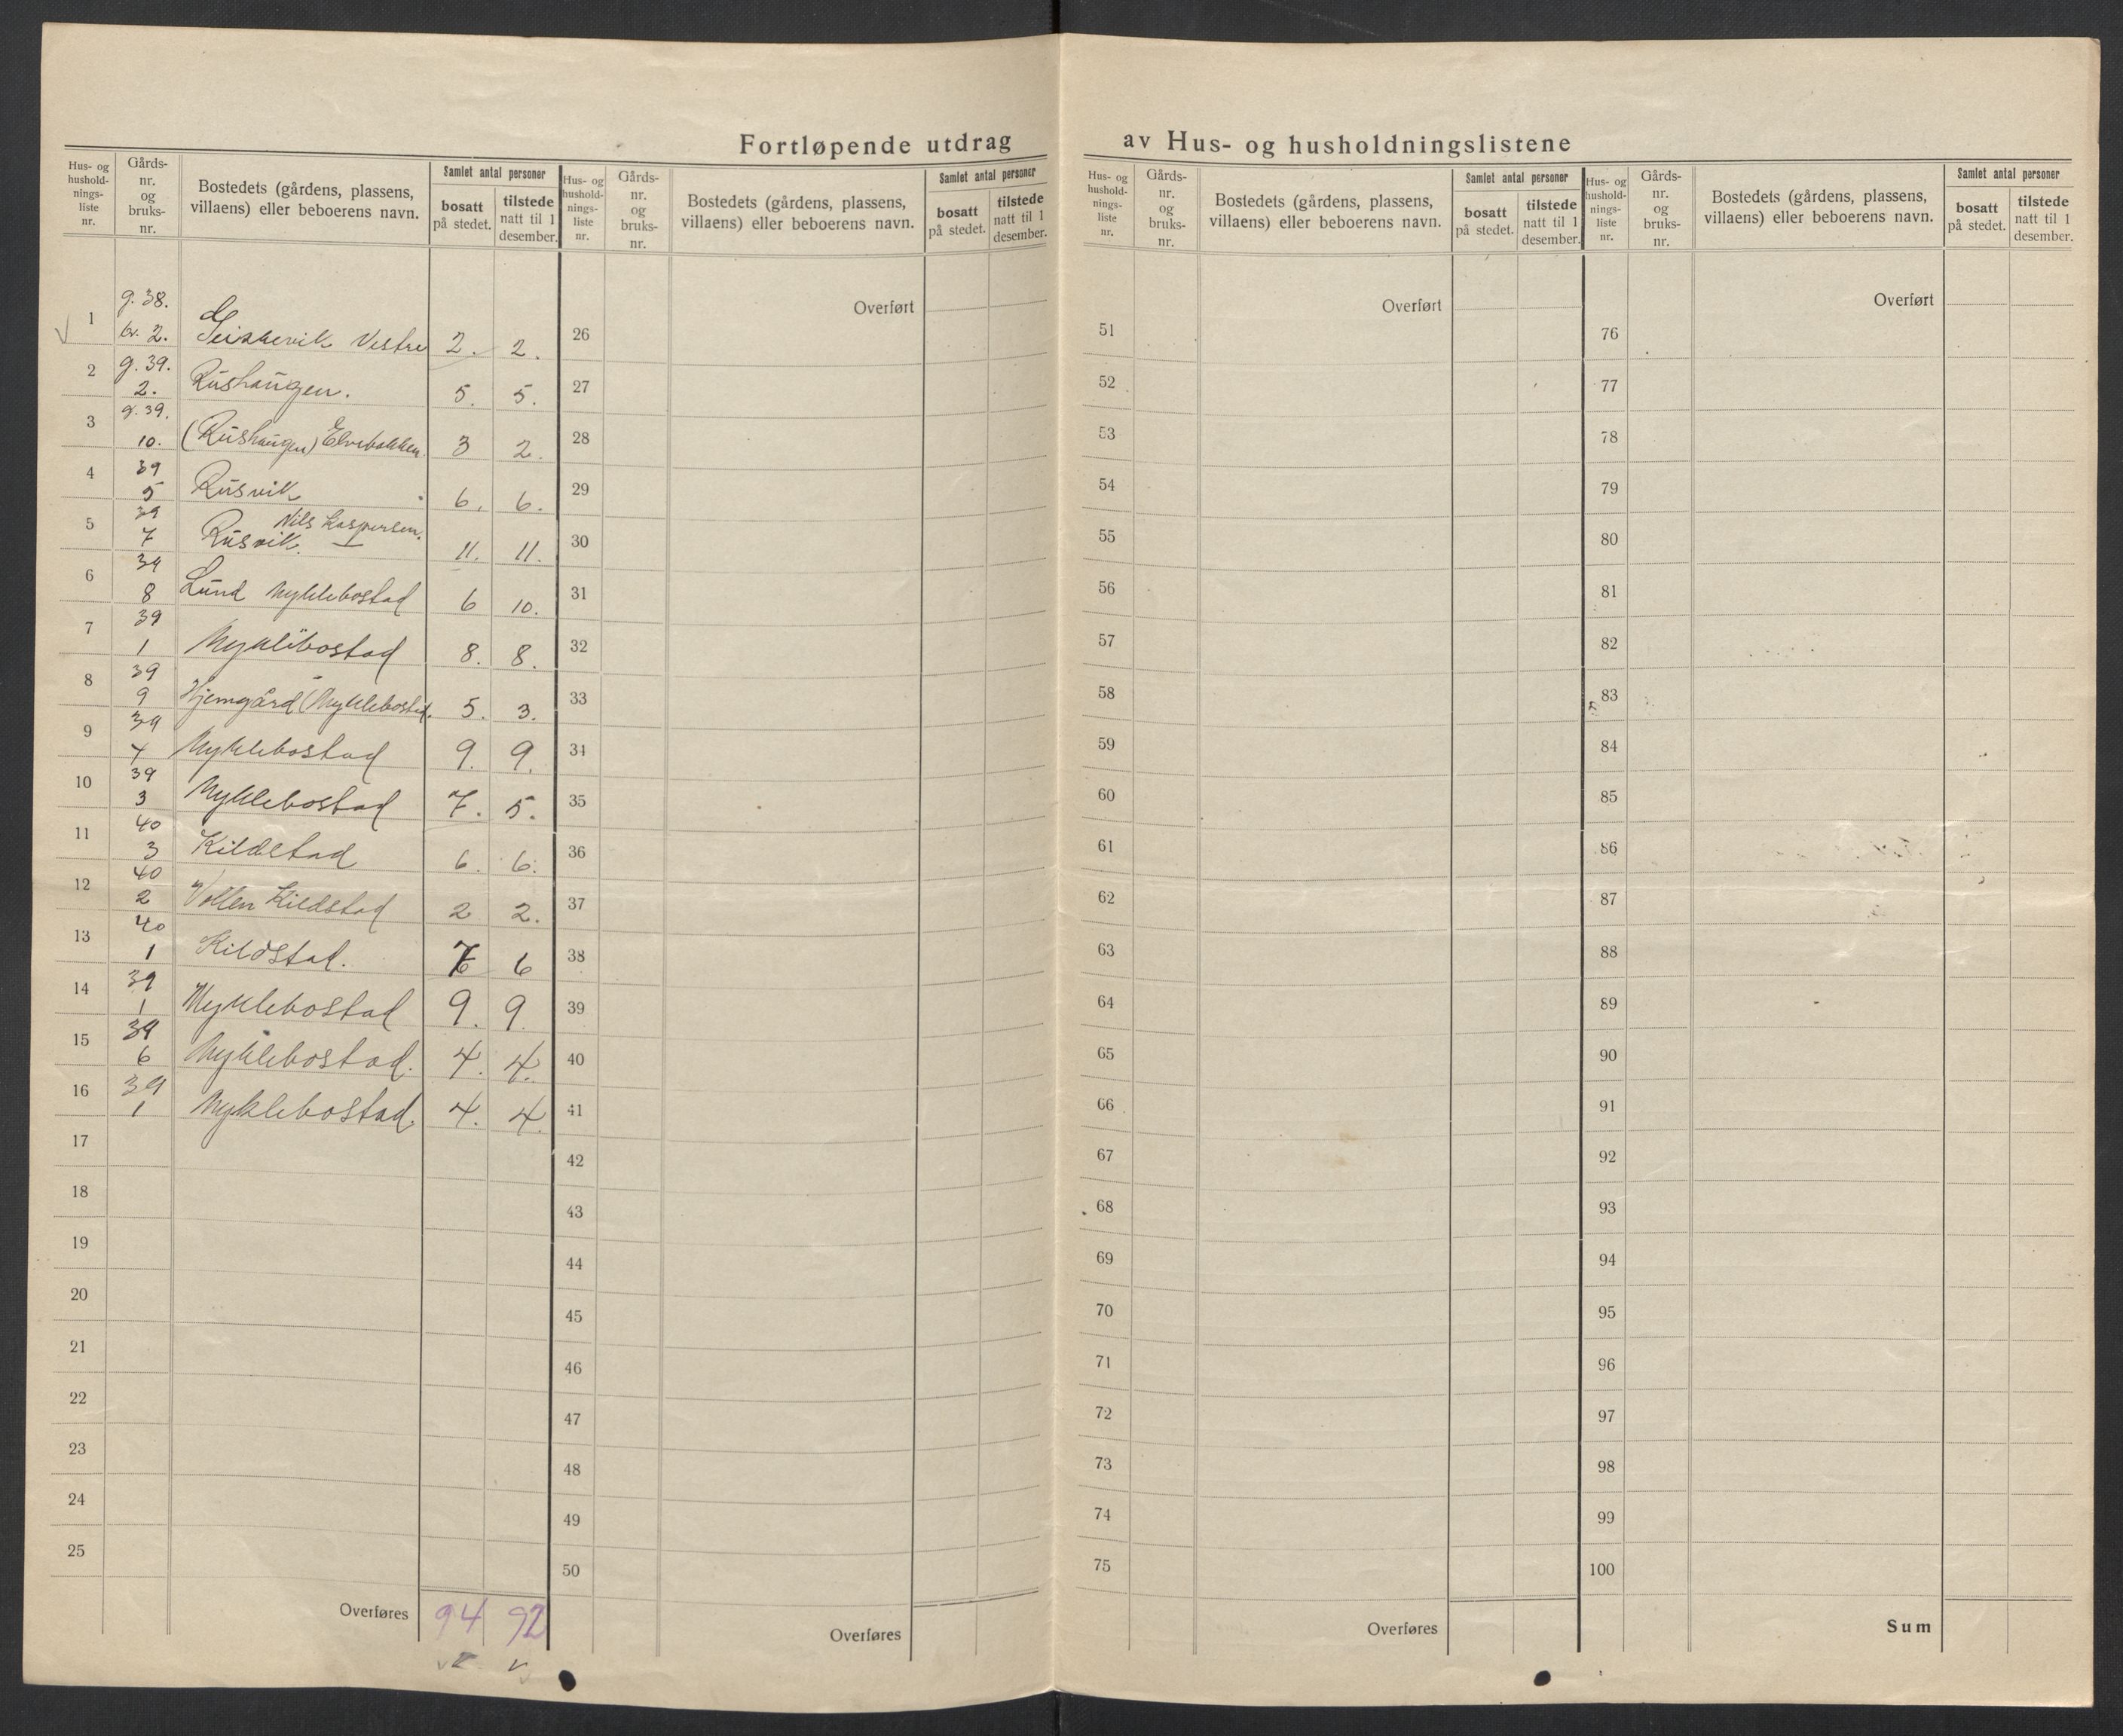 Fortløpende utdrag av Hus- og husholdningslistene
Hus- og
hushold-
nings-
liste
nr.
Gårds-
nr.
og
bruks-
nr.
Bostedets (gårdens, plassens,
villaens) eller beboerens navn.
Samlet antal personer
bosatt
på stedet.
tilstede
natt til 1
desember.
1 g. 38.
br. 2. Vestre 2. 2.
2 g. 39.
2. Rushaugen. 5. 5.
3 g. 39.
10. (Rushaugen) Elvebakken 3 2.
4 39
5 Rusvik 6. 6.
5 39 Nils Kaspersen.
7 Rusvik. 11. 11.
6 39
8 Lund Myklebostad 6 10.
7 39
1 Myklebostad 8. 8.
8 39
9 Hjemgård (Myklebostad. 5. 3.
9 39
4 Myklebostad 9. 9.
10 39
3 Myklebostad 7. 5.
11 40
3 Kildstad 6. 6.
12 40
2 Vollen Kildstad 2 2.
13 40
1 Kildstad. 6
14 39
1 Myklebostad 9. 9.
15 39
6 Myklebostad. 4. 4.
16 39
1 Myklebostad. 4. 4.
17
18
19
20
21
22
23
24
25
Overføres 94 92
Hus- og
hushold-
nings-
liste
nr.
Gårds-
nr.
og
bruks-
nr.
Bostedets (gårdens, plassens,
villaens) eller beboerens navn.
Samlet antal personer
bosatt
på stedet.
tilstede
natt til 1
desember.
Overført
26
27
28
29
30
31
32
33
34
35
36
37
38
39
40
41
42
43
44
45
46
47
48
49
50
Overføres
Hus- og
hushold-
nings-
liste
nr.
Gårds-
nr.
og
bruks-
nr.
Bostedets (gårdens, plassens,
villaens) eller beboerens navn.
Samlet antal personer
bosatt
på stedet.
tilstede
natt til 1
desember.
Overført
51
52
53
54
55
56
57
58
59
60
61
62
63
64
65
66
67
68
69
70
71
72
73
74
75
Overføres
Hus- og
hushold-
nings-
liste
nr.
Gårds-
nr.
og
bruks-
nr.
Bostedets (gårdens, plassens,
villaens) eller beboerens navn.
Samlet antal personer
bosatt
på stedet.
tilstede
natt til 1
desember.
Overført
76
77
78
79
80
81
82
83
84
85
86
87
88
89
90
91
92
93
94
95
96
97
98
99
100
Sum